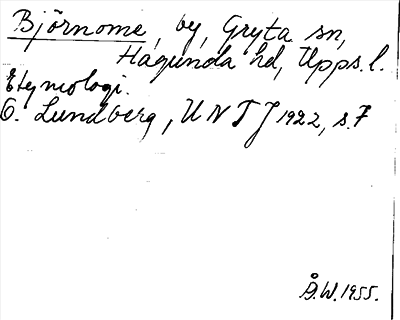 Björnome, by, Gryta sn,
Hagunda hd, Upps. l.
Etymologi.
O. Lundberg, UNT J 1922, s. 7
Å.W. 1955.